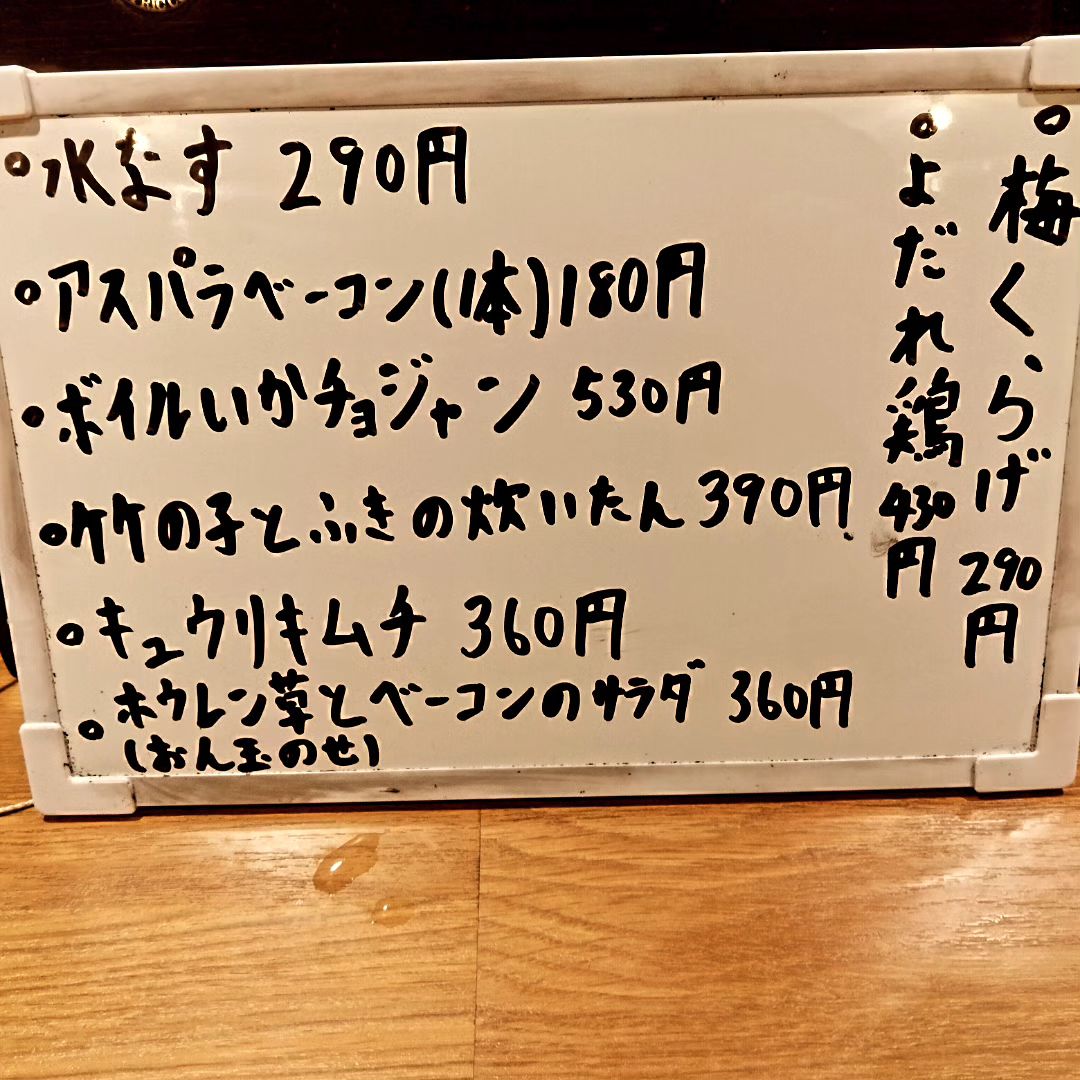 ・水なす 290円
・アスパラベーコン(1本)180円
・ボイルいかチョジャン 530円
・竹の子とふきの炊いたん 390円
・キュウリキムチ 360円
・ホウレン草とベーコンのサラダ 360円
(おん玉のせ)
・梅くらげ 290円
・よだれ鶏 430円